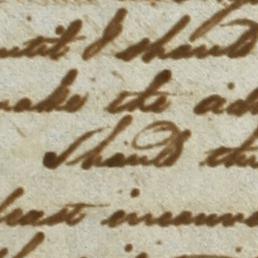 until I should
make the ad
Should th
least incurr